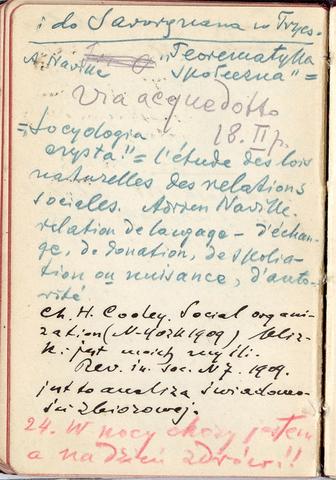 i do Savorgnana w Tryes.
A. Naville "Teorematyka
społeczna" =
Via acquedotto
18. II p.
= "Socyologia
czysta" = l'étude des lois
naturelles des relations
sociales. Adrien Naville.
relation de langage – d'échan-
ge, de donation, de spolia-
tion ou nuisance, d'auto-
rité.
Ch. H. Cooley. Social organi-
zation (N-York 1909) bliz-
k. jest moich myśli.
Rev. in. soc. N 7. 1909.
jest to analiza świadomo-
ści zbiorowej.
24. W nocy chory jestem
a na dzień zdrów!!